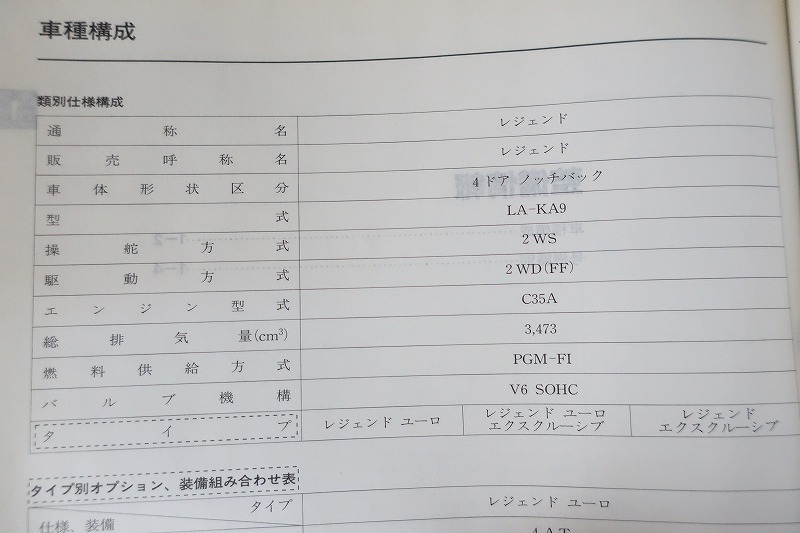 車種構成
類別仕様構成
通称名 レジェンド
販売呼称名 レジェンド
車体形状区分 4ドア ノッチバック
型式 LA-KA9
操舵方式 2WS
駆動方式 2WD(FF)
エンジン型式 C35A
総排気量(cm³) 3,473
燃料供給方式 PGM-FI
バルブ機構 V6 SOHC
タイプ レジェンド ユーロ レジェンド ユーロ エクスクルーシブ レジェンド エクスクルーシブ
タイプ別オプション、装備組み合わせ表
タイプ レジェンド ユーロ
仕様、装備 4AT